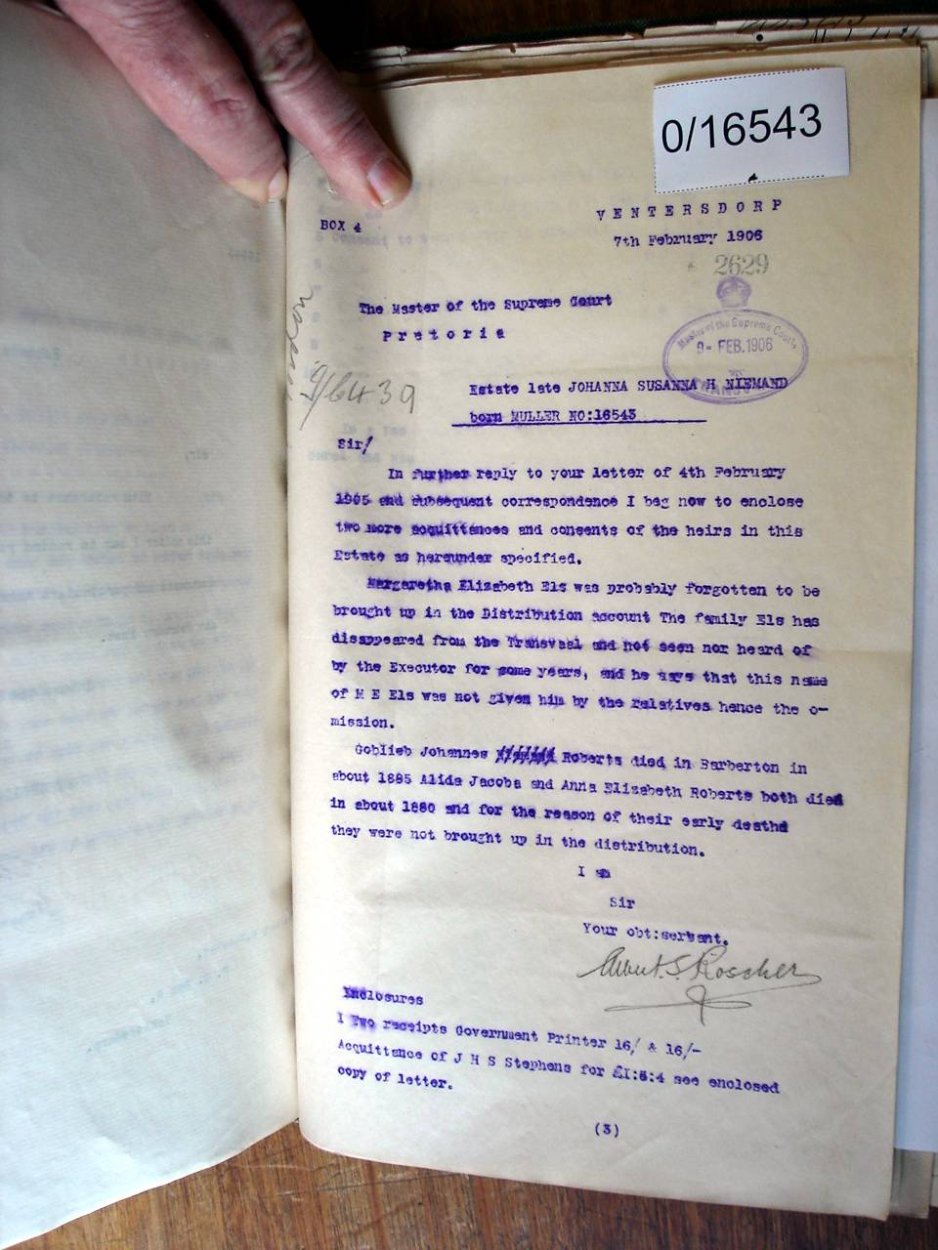 0/16543
BOX 4
VENTERSDORP
7th February 1906
2629
The Master of the Supreme Court
Pretoria
Master of the Supreme Court
9- FEB. 1906
Estate late JOHANNA SUSANNA H NIEMAND
born MULLER NO:16543
Sir/
In further reply to your letter of 4th February
1905 and subsequent correspondence I beg now to enclose
two more acquittances and consents of the heirs in this
Estate as hereunder specified.
Margaretha Elizabeth Els was probably forgotten to be
brought up in the Distribution account The family Els has
disappeared from the Transvaal and not seen nor heard of
by the Executor for some years, and he says that this name
of M E Els was not given him by the relatives hence the o-
mission.
Goblieb Johannes Roberts died in Barberton in
about 1885 Alida Jacoba and Anna Elizabeth Roberts both died
in about 1880 and for the reason of their early deaths
they were not brought up in the distribution.
I am
Sir
Your obt:servant.
Albert.S.Roscher
Enclosures
1 Two receipts Government Printer 16/ & 16/-
Acquittance of J H S Stephens for £1:5:4 see enclosed
copy of letter.
(3)